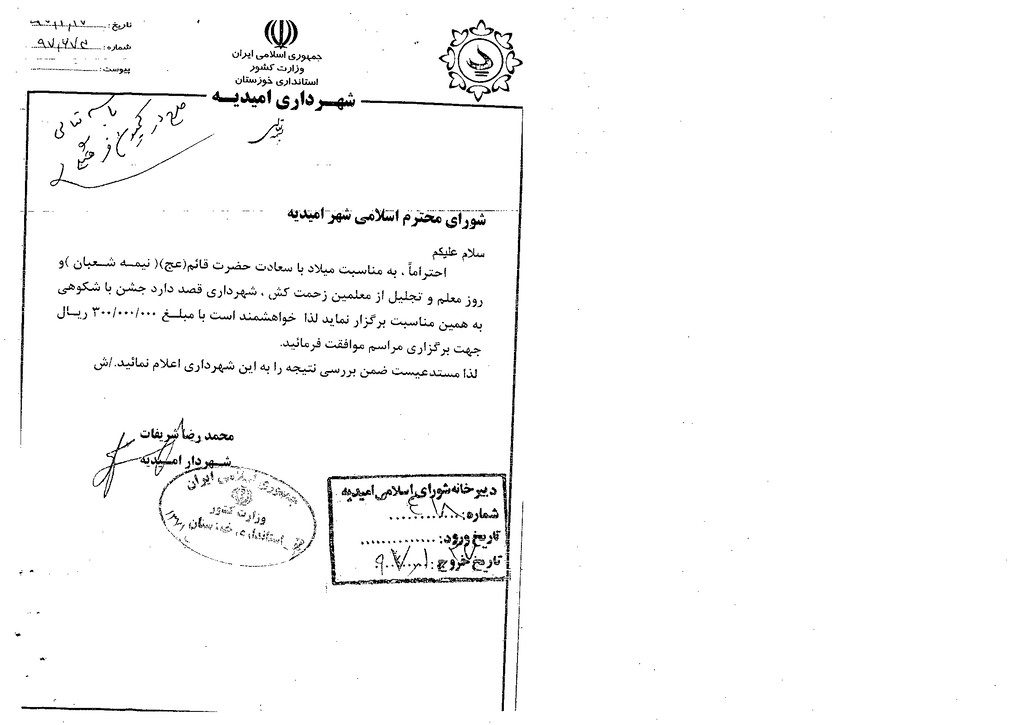 جمهوری اسلامی ایران
وزارت کشور
استانداری خوزستان
شهـرداری امیدیـه
تاریخ:
شماره: ۹۷٫۶۷۳
پیوست:
باسمه تعالی
شورای محترم اسلامی شهر امیدیه
سلام علیکم
احتراماً ، به مناسبت میلاد با سعادت حضرت قائم(عج)( نیمـه شـعبان )و
روز معلم و تجلیل از معلمین زحمت کش ، شهرداری قصد دارد جشن با شکوهی
به همین مناسبت برگزار نماید لذا خواهشمند است با مبلـغ ۳۰۰/۰۰۰/۰۰۰ ریـال
جهت برگزاری مراسم موافقت فرمائید.
لذا مستدعیست ضمن بررسی نتیجه را به این شهرداری اعلام نمائید./ش
محمد رضا شریفات
شـهردار امـیدیه
جمهوری اسلامی ایران
وزارت کشور
استانداری خوزستان
دبیرخانه شورای اسلامی امیدیه
شماره:
تاریخ ورود:
تاریخ خروج: